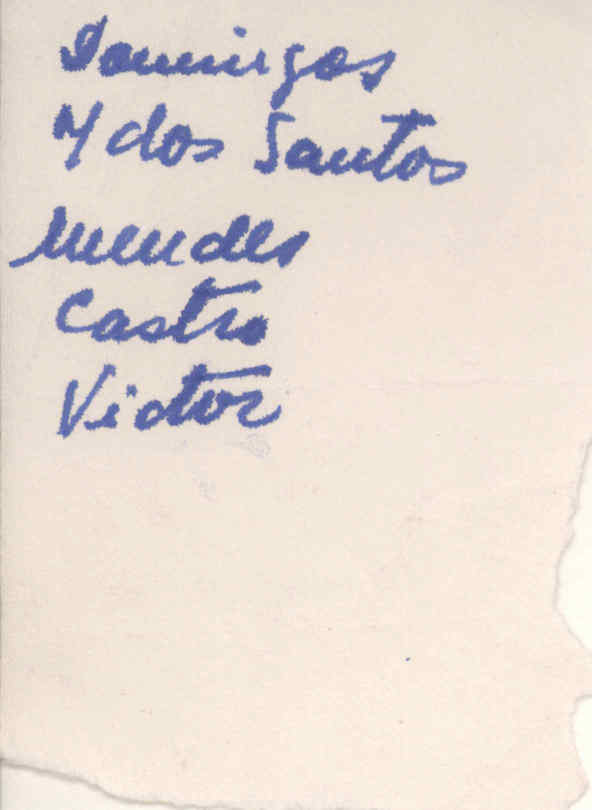 Domingos
M dos Santos
Mendes
Castro
Victor